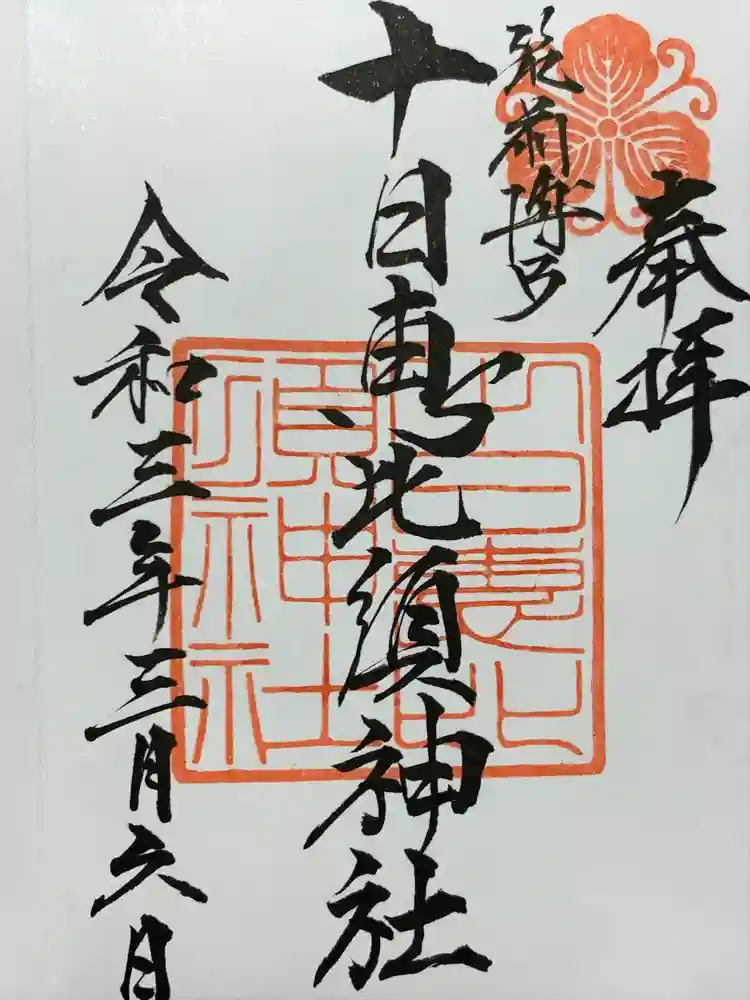 奉拝
筑前博多
十日恵比須神社
令和三年三月六日
十日恵比須神社